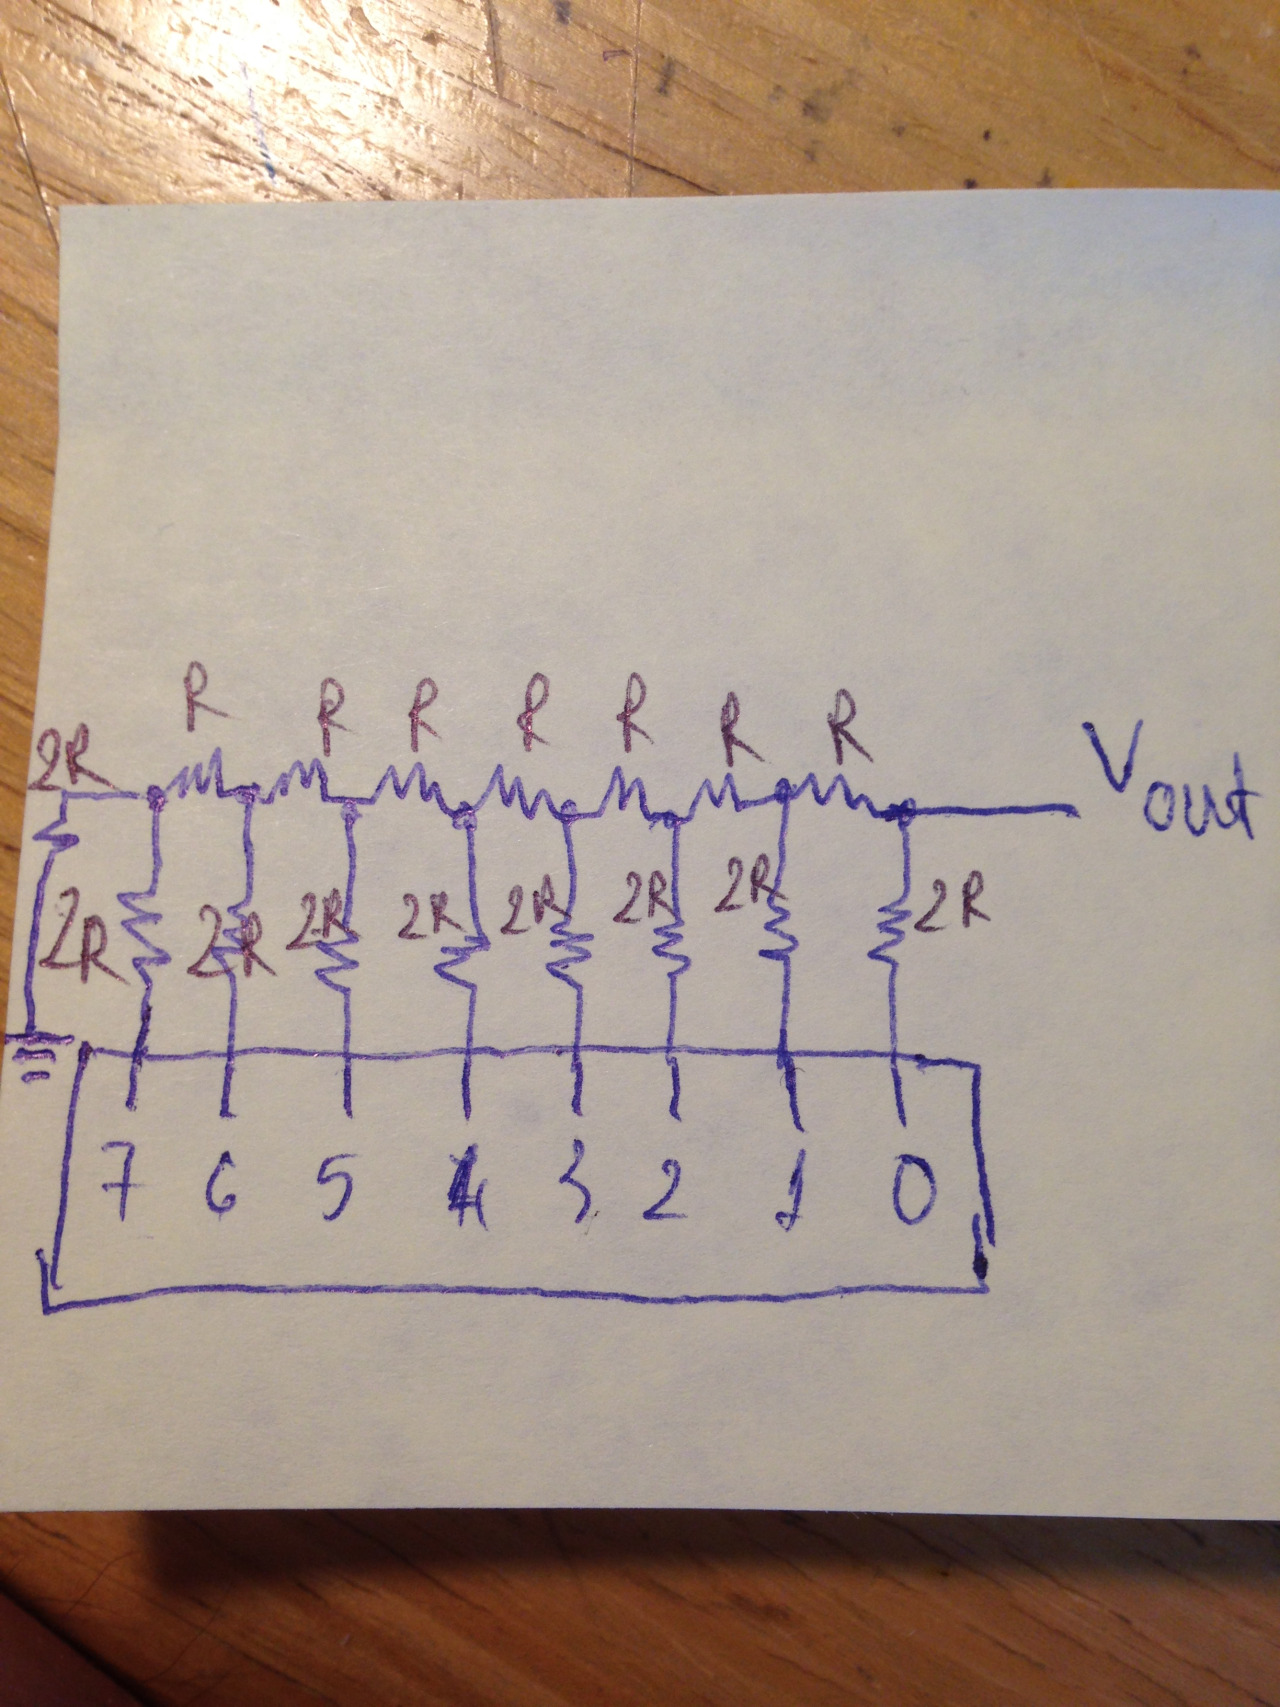 R R R R R R R
2R
V out
2R 2R 2R 2R 2R 2R 2R 2R
7 6 5 4 3 2 1 0